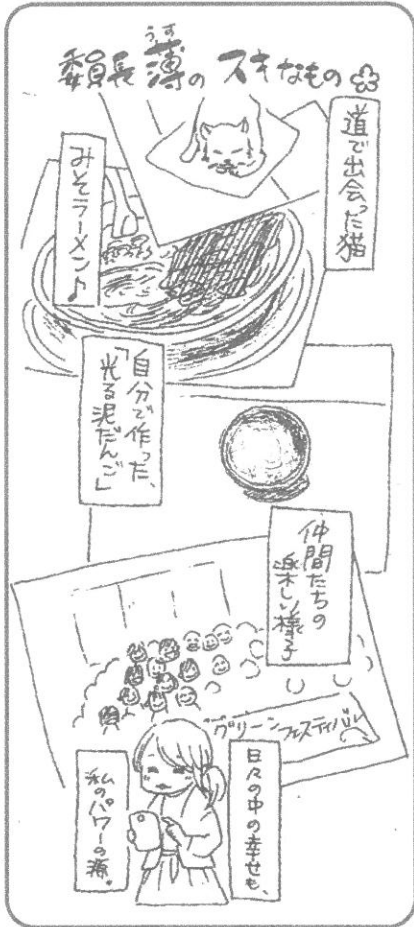 委員長薄のスキなもの
うす
道で出会った猫
みそラーメン♪
自分で作った、
「光る泥だんご」
仲間たちの
楽しい様子
グリーンフェスティバル
日々の中の幸せも、
私のパワーの源。